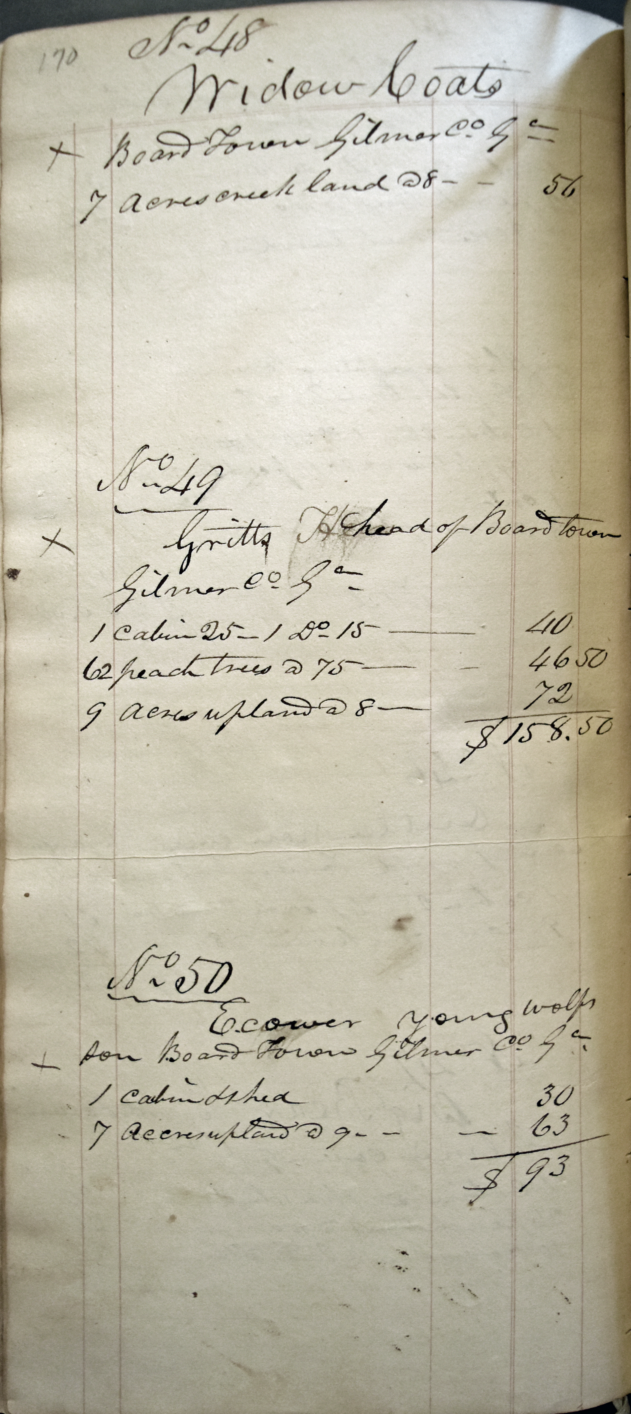 170 No 48
Widow Coats
+ Board Town Gilmer Co Ga
7 Acres creek land @ 8 - - 56
No 49
+ Gritts Head of Boardtown
Gilmer Co Ga
1 cabin 25 - 1 Do 15 — 40
62 peach trees @ 75 — - 46 50
9 Acres upland @ 8 — 72
$158.50
No 50
Ecower young wolfs
+ son Board Town Gilmer Co Ga
1 cabin & shed 30
7 Accres upland @ 9 - - — 63
$ 93